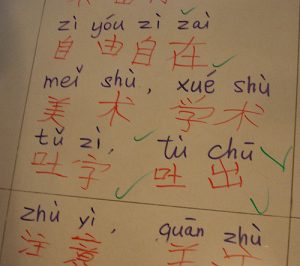 zì yóu zì zài
自由自在
měi shù, xué shù
美术 学术
tǔ zì, tù chū
吐字 吐出
zhù yì, quān zhù
注意